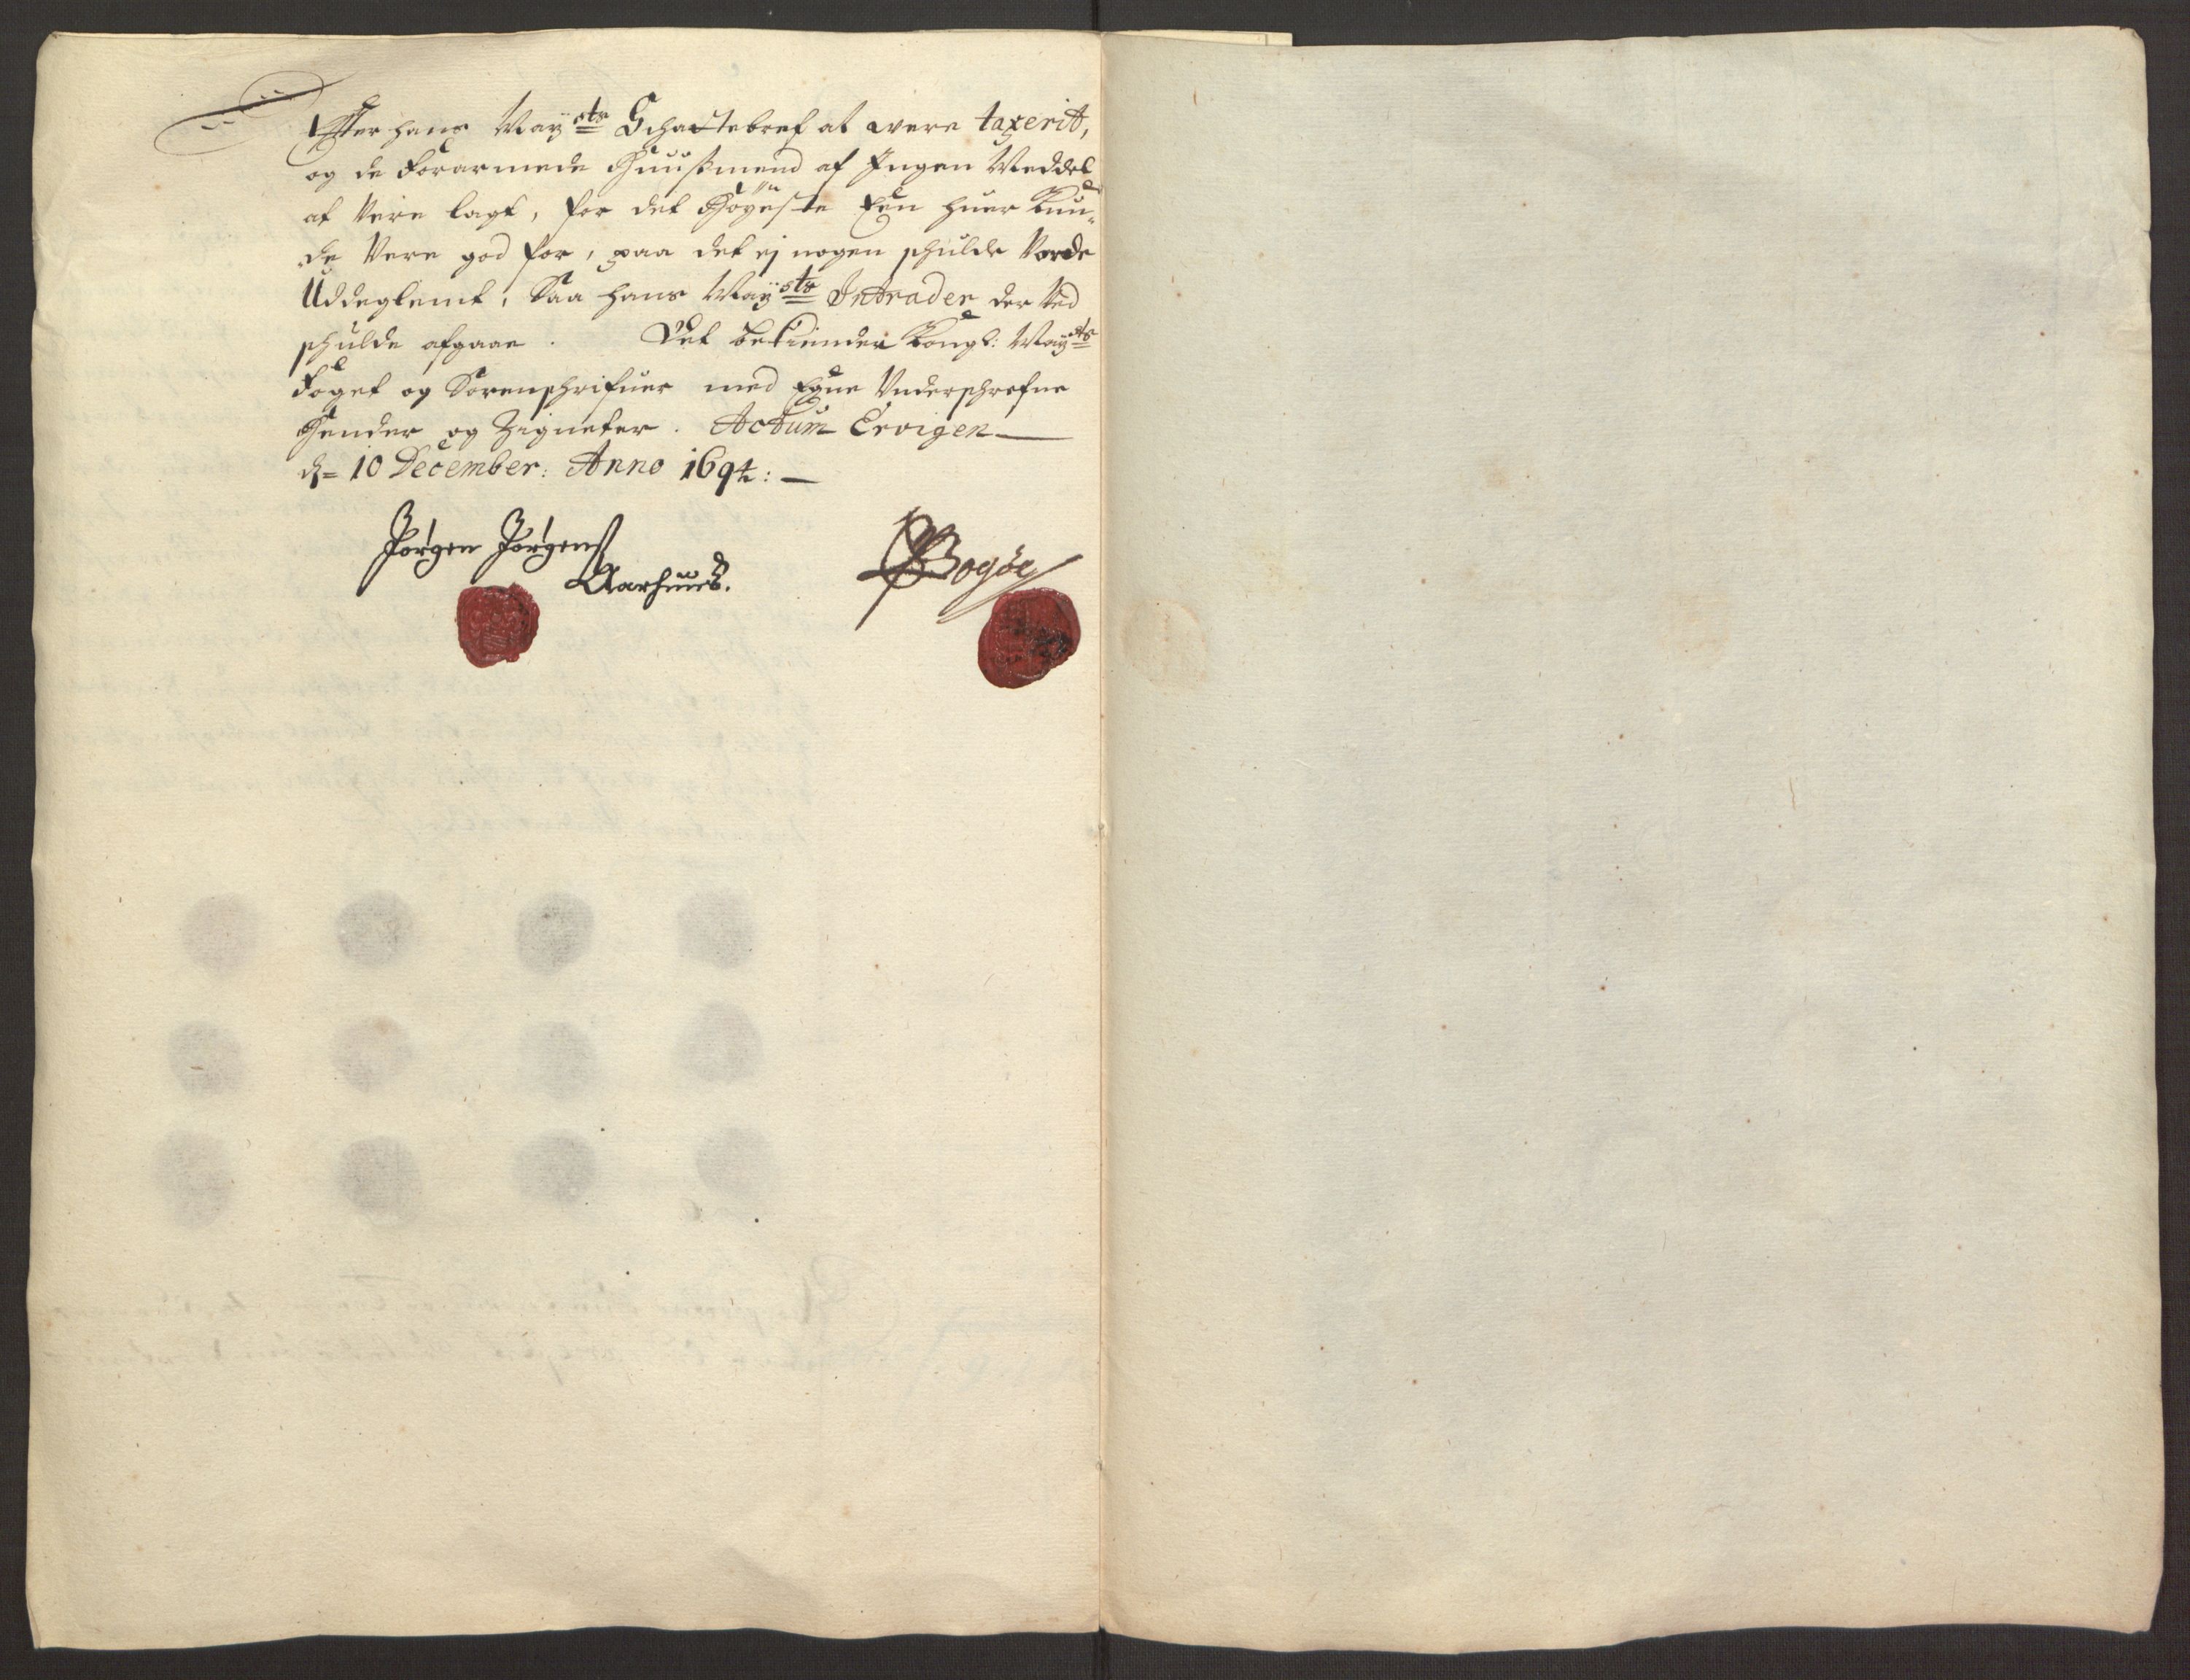 Efter hans May:sts Schattebref at vere taxerit,
og de forarmede Huusmend af Ingen Meddel
at vere lagt, for det Høyeste Een huer kun¬
de Vere god for, paa det ej nogen schulde Vorde
Uddeglemt, Saa hans May:sts Intrader der Ved
schulde afgaae. Det bekiender Kongl: May:sts
Foget og Sorenschrifuer med Egne Underschrefne
Hender og Zigneter. Actum Ervigen
d= 10 December: Anno 1694:
Jørgen Jørgens
Aarhuus.
Bogöe